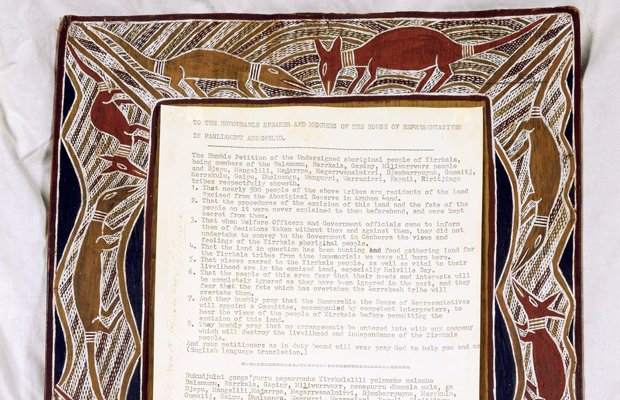 TO THE HONOURABLE SPEAKER AND MEMBERS OF THE HOUSE OF REPRESENTATIVES
IN PARLIAMENT ASSEMBLED.
The Humble Petition of the Undersigned aboriginal people of Yirrkala,
being members of the Balamumu, Narrkala, Gapiny, Miliwurrwurr people
and Djapu, Mangalili, Madarrpa, Magarrwanalmirri, Djambarrpuynu, Gumaitj,
Marrakulu, Galpu, Dhaluangu, Wangurri, Warramirri, Naymil, Riritjingu
tribes respectfully sheweth.
1. That nearly 500 people of the above tribes are residents of the land
excised from the Aboriginal Reserve in Arnhem Land.
2. That the procedures of the excision of this land and the fate of the
people on it were never explained to them beforehand, and were kept
secret from them.
3. That when Welfare Officers and Government officials came to inform
them of decisions taken without them and against them, they did not
undertake to convey to the Government in Canberra the views and
feelings of the Yirrkala aboriginal people.
4. That the land in question has been hunting and food gathering land for
the Yirrkala tribes from time immemorial; we were all born here.
5. That places sacred to the Yirrkala people, as well as vital to their
livelihood are in the excised land, especially Melville Bay.
6. That the people of this area fear that their needs and interests will
be completely ignored as they have been ignored in the past, and they
fear that the fate which has overtaken the Larrakeah tribe will
overtake them.
7. And they humbly pray that the Honourable the House of Representatives
will appoint a Committee, accompanied by competent interpreters, to
hear the views of the people of Yirrkala before permitting the
excision of this land.
8. They humbly pray that no arrangements be entered into with any company
which will destroy the livelihood and independence of the Yirrkala
people.
And your petitioners as in duty bound will ever pray God to help you and us
(English language translation.)
Bukudjulni gonga'yurru napurrunha Yirrkalalili yulnunha malanha
Balamumu, Narrkala, Gapiny, Miliwurrwurr, nanapurru dhuwala mala, ga
Djapu, Mangalili, Madarrpa, Magarrwanalmirri, Djambarrpuynu,
Gumaitj, Galpu, Dhaluangu, Wangurri, Warramirri,